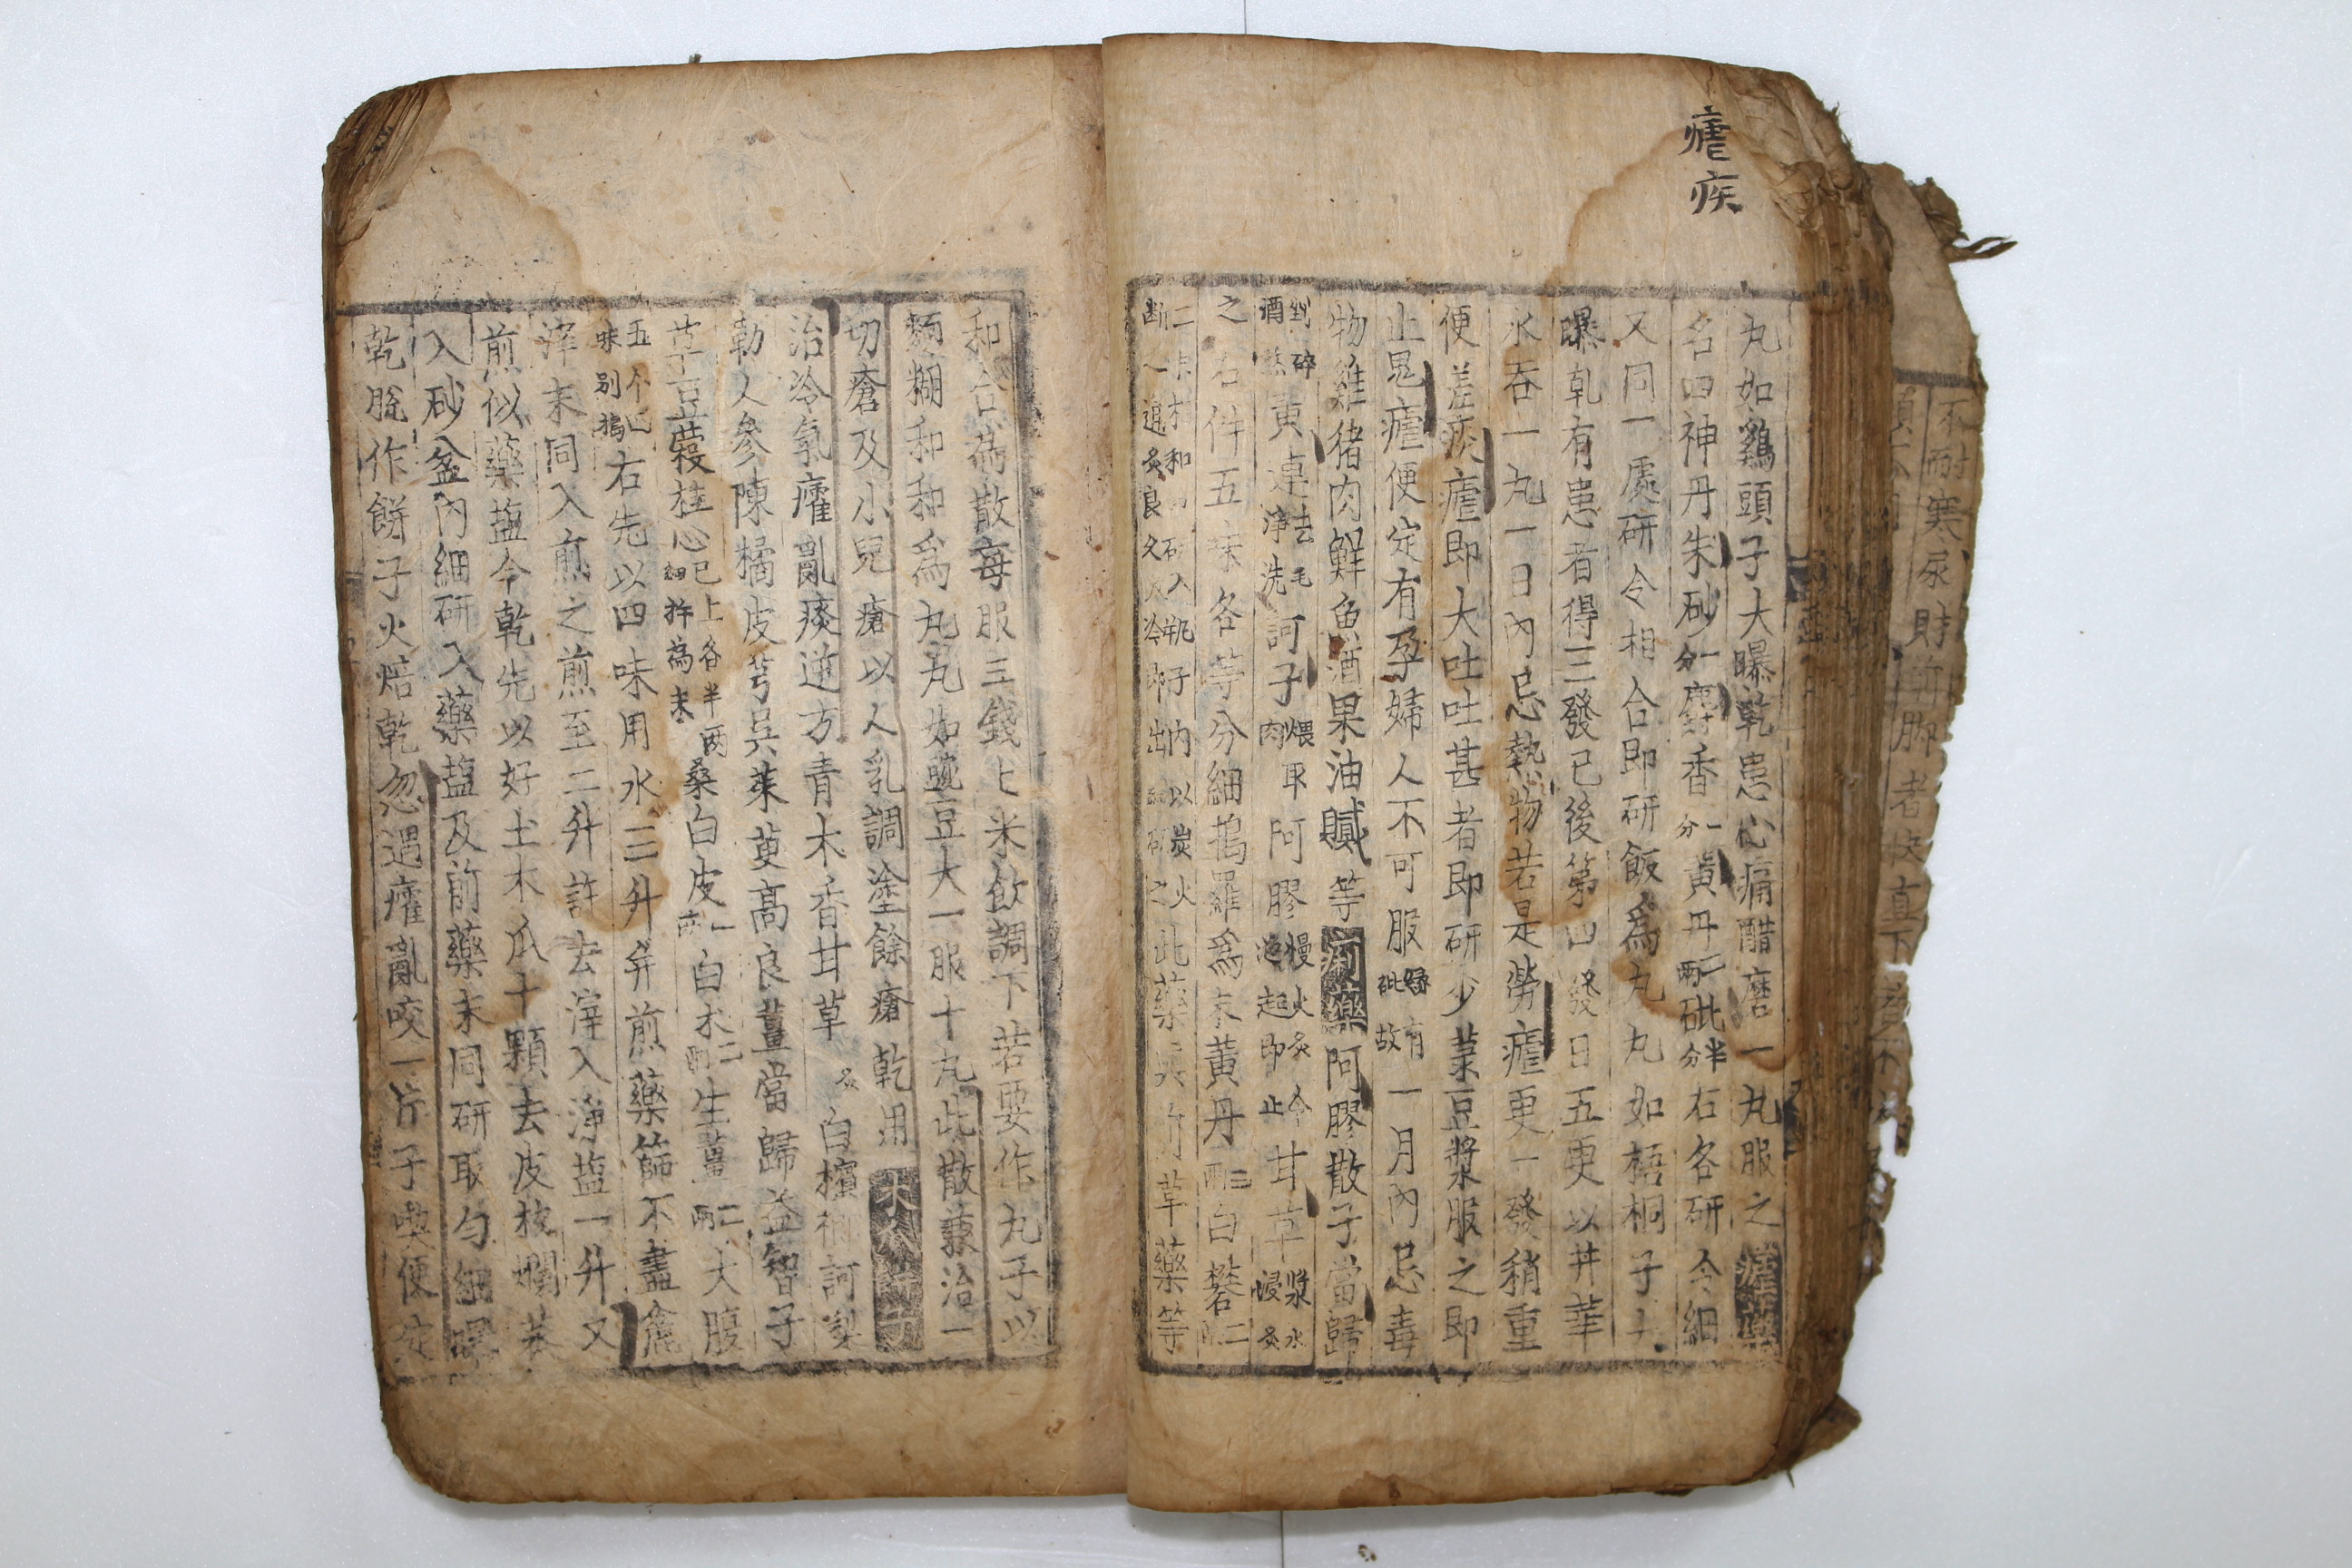 瘧疾
丸如鷄頭子大曝乾患心痛醋磨一丸服之瘧藥
名四神丹朱砂一分麝香一分黃丹二兩砒半分右各研令細
又同一處研令相合即研飯爲丸丸如梧桐子大
曝乾有患者得三發已後第四發日五更以井華
水吞一丸一日內忌熱物若是勞瘧更一發稍重
便差痎瘧即大吐吐甚者即研少菉豆漿服之即
止鬼瘧便定有孕婦人不可服緣有砒故一月內忌毒
物雞猪肉鮮魚酒果油膩等痢藥阿膠散子當歸
剉碎酒黃連去毛淨洗訶子煨取肉阿膠慢火炙令泡起即止甘草漿水浸炙
之右件五味各等分細擣羅爲末黃丹三兩白礬二
二味和研入瓶子內以炭火斷之通炙良久冷即出細研之此藥草藥等
和合爲散每服三錢匕米飲調下若要作丸子以
麵糊和和爲丸丸如豌豆大一服十丸此散兼治一
切瘡及小兒瘡以人乳調塗餘瘡乾用
治冷氣癨亂痰逆方靑木香甘草炙白檳榔訶梨
勒人參陳橘皮芎吳茱萸高良薑當歸益智子
草豆蔲桂心已上各半兩細杵爲末桑白皮一兩白朮二兩生薑二兩大腹
五个已味別擣右先以四味用水三升弁煎藥篩不盡麄
滓末同入煎之煎至二升許去滓入淨塩一升又
煎似藥塩令乾先以好土木瓜十顆去皮核爛蒸
入砂盆內細硏入藥塩及前藥末同硏取勻細曝
乾脫作餠子火焙乾忽遇癨亂咬一片子喫便定
不耐寒尿